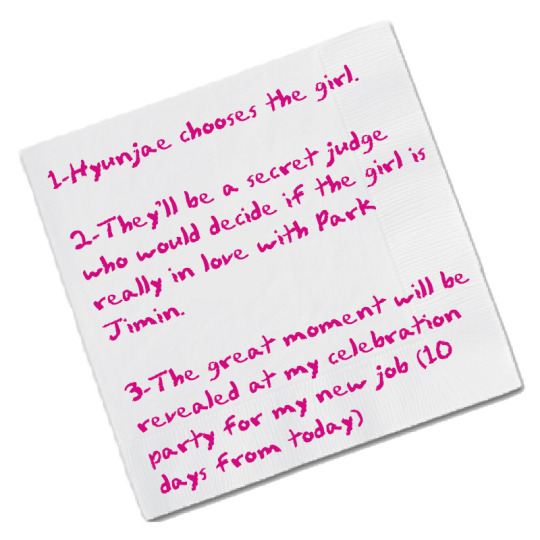 1-Hyunjae chooses the girl.
2-They'll be a secret judge
who would decide if the girl is
really in love with Park
Jimin.
3-The great moment will be
revealed at my celebration
party for my new job (10
days from today)